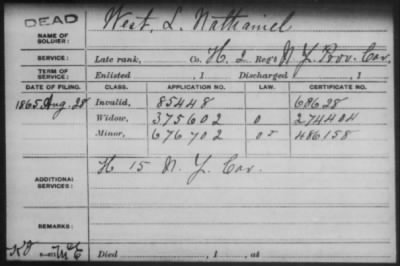 DEAD
West, L. Nathaniel
NAME OF SOLDIER:
SERVICE: Late rank, Co. H, 2 Reg't N Y Prov. Cav.
TERM OF SERVICE: Enlisted , 1 Discharged , 1
DATE OF FILING. CLASS. APPLICATION NO. LAW. CERTIFICATE NO.
1865, Aug. 28 Invalid, 85448 68628
Widow, 375602 0 274404
Minor, 676702 486158
ADDITIONAL SERVICES: H 15 N. Y. Cav.
REMARKS:
Died , 1 , at